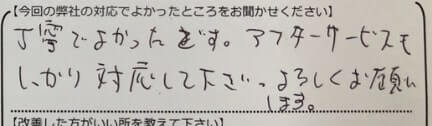 【今回の弊社の対応でよかったところをお聞かせください】
丁寧でよかったです。アフターサービスも
しっかり対応して下さい。よろしくお願い
します。
【改善した方がいい所を教えて下さい】